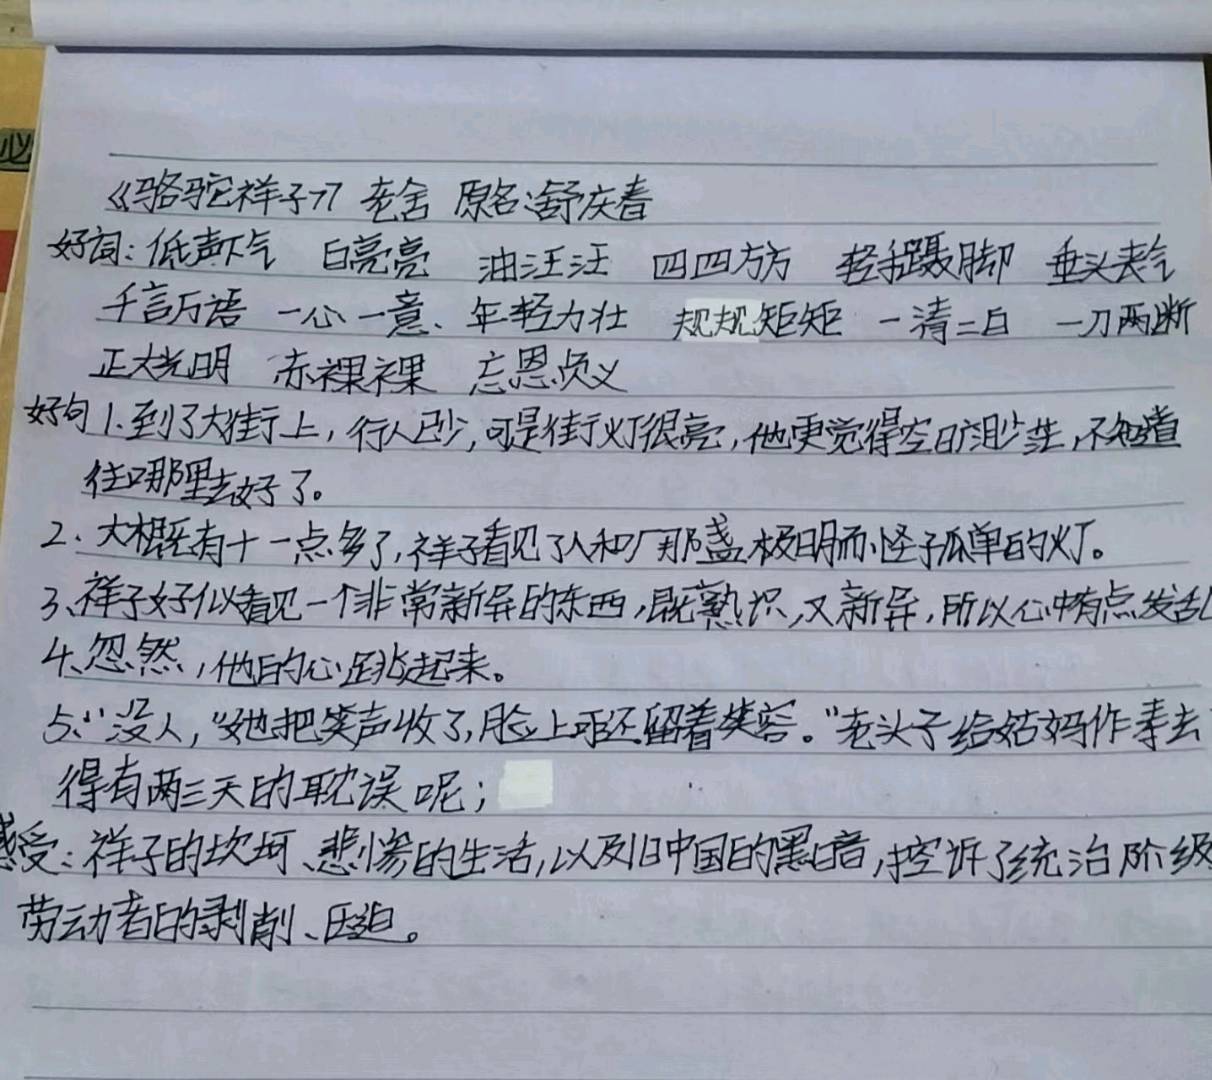 必
《骆驼祥子》 老舍 原名:舒庆春
好词:低声下气 白亮亮 油汪汪 四四方方 轻手蹑脚 垂头丧气
千言万语 一心一意、年轻力壮 规规矩矩 一清二白 一刀两断
正大光明 赤裸裸 忘恩负义
好句1.到了大街上,行人已少,可是街灯很亮,他更觉得空旷渺茫,不知道
往哪里去好了。
2.大概有十一点多了,祥子看见了人和厂那盏极明而怪孤单的灯。
3、祥子好似看见一个非常新异的东西,既熟识,又新异,所以心中有点发乱
4、忽然,他的心跳起来。
5、“没人,“她把笑声收了,脸上可还留着笑容。“老头子给姑妈作寿去
得有两三天的耽误呢;
感受:祥子的坎坷、悲惨的生活,以及旧中国的黑暗,控诉了统治阶级
劳动者的剥削、压迫。